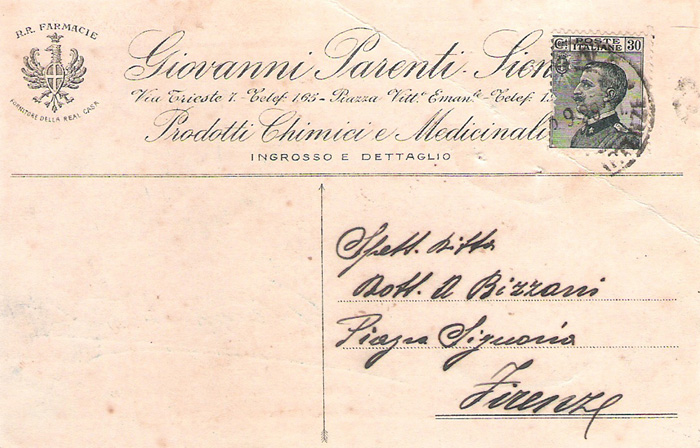 R.R. FARMACIE
FORNITORE DELLA REAL CASA
Giovanni Parenti - Sien
Via Trieste 7. - Telef. 1.65 - Piazza Vitt.º Eman.le - Telef. 1.
Prodotti Chimici e Medicinali
INGROSSO E DETTAGLIO
POSTE
ITALIANE
30
Spett. Ditta
Dott. A Bizzarri
Piazza Signoria
Firenze